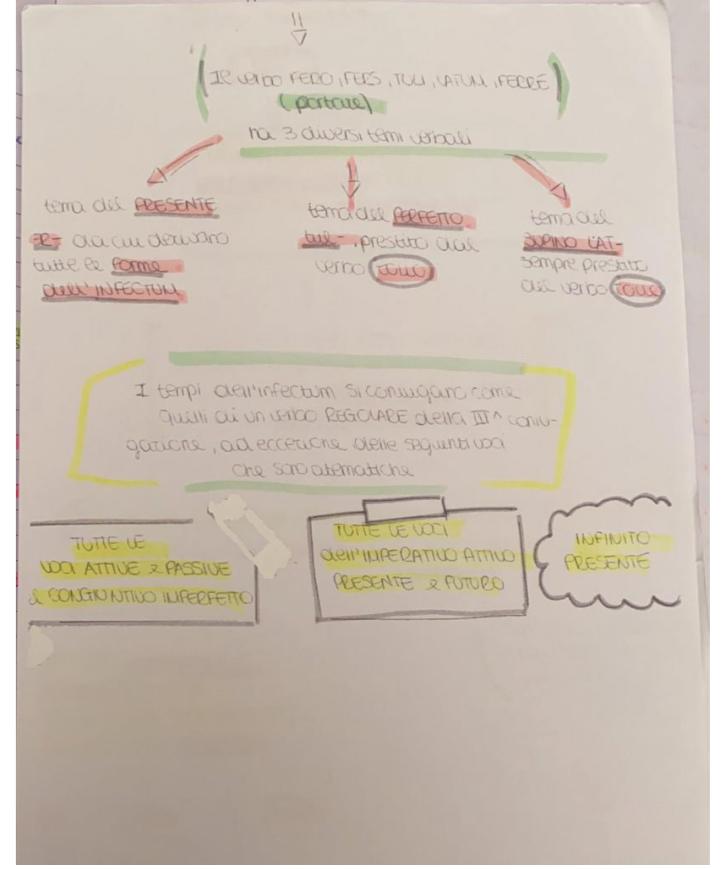 Il verbo FERO, FERS, TULI, LATUM, FERRE
(portare)
ha 3 diversi temi verbali
tema del PRESENTE
FER- da cui derivano
tutte le forme
dell'INFECTUM
tema del PERFETTO
tul-, prestito dal
verbo
tema del
SUPINO LAT-
sempre prestito
del verbo
I tempi dell'infectum si coniugano come
quelli di un verbo REGOLARE della III^ coniu-
gazione, ad eccezione delle seguenti voci
che sono atematiche
TUTTE LE
VOCI ATTIVE e PASSIVE
CONGIUNTIVO IMPERFETTO
TUTTE LE VOCI
dell'IMPERATIVO ATTIVO
PRESENTE e FUTURO
INFINITO
PRESENTE